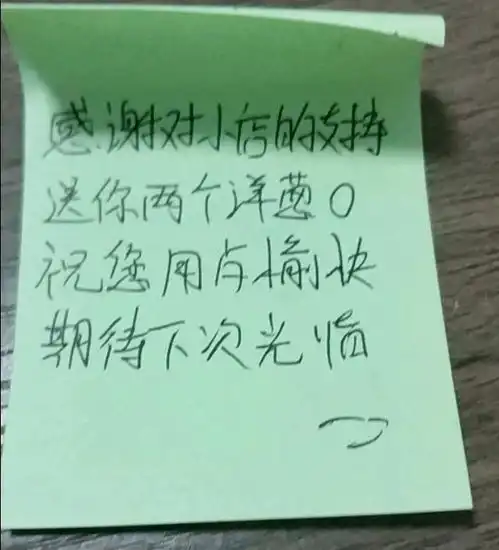 感谢对小店的支持
送你两个洋葱O
祝您用占愉快
期待下次光临